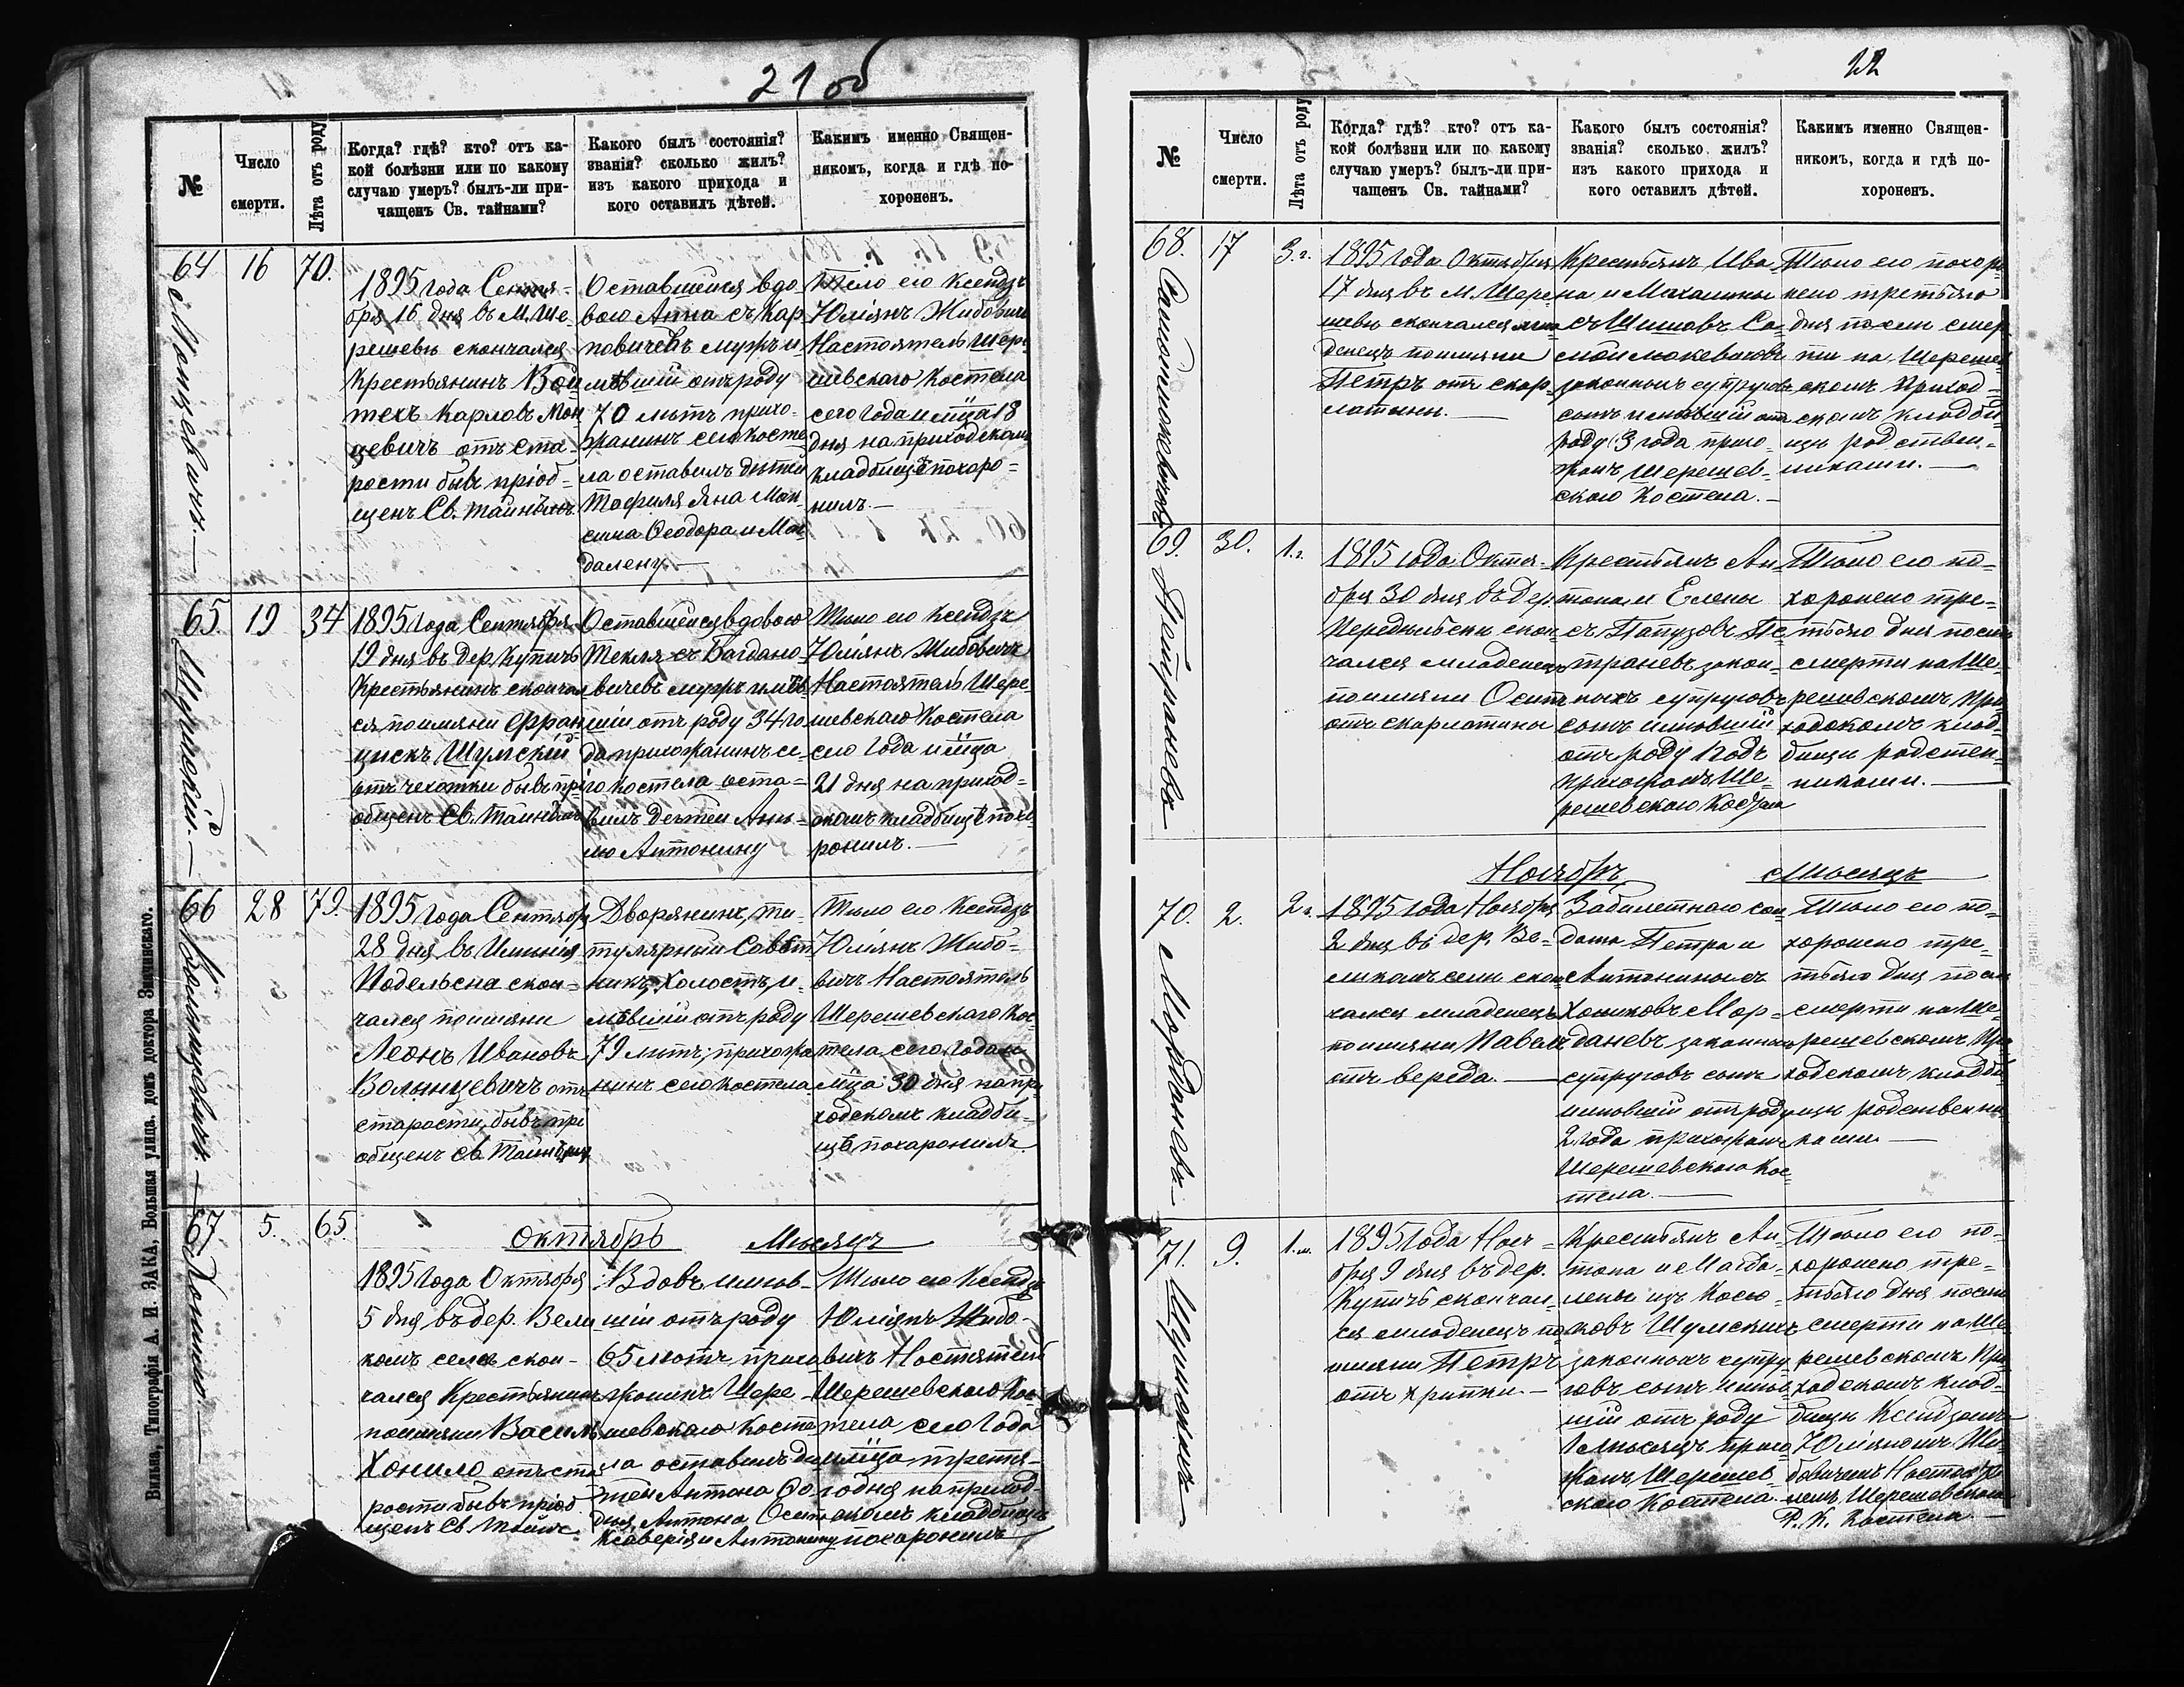 21 об
№
Число
смерти.
Лѣта отъ роду
Когда? гдѣ? кто? отъ ка-
кой болѣзни или по какому
случаю умеръ? былъ-ли при-
чащенъ Св. тайнами?
Какого былъ состоянія?
званія? сколько жилъ?
изъ какого прихода и
кого оставилъ дѣтей.
Какимъ именно Священ-
никомъ, когда и гдѣ по-
хороненъ.
64
16
70.
1895 года Сентя-
бря 16 дня въ М. Ше-
решевѣ скончался
Крестьянинъ Вой
техъ Карловъ Мон
цевичъ отъ ста-
рости бывъ пріоб-
щенъ Св. Тайнъ
Оставшейся вдо-
вою Анна съ Кар
повичевъ мужъ и-
мѣвшій отъ роду
70 лѣтъ прихо-
жанинъ сего косте
ла оставилъ дѣтей
Тофиля Яна Мак
сима Ѳеодора и Маг
далену.
Тѣло его Ксендзъ
Юліянъ Жибовичъ
Настоятель Шере
шевскаго Костела
сего года и мца 18
дня на приходскомъ
кладбищѣ похоро-
нилъ.
65.
Шумскій.
19
34
1895 года Сентября
19 дня въ дер. Купичъ
Крестьянинъ сконча
ся по имяни Фран
цискъ Шумскій
отъ чехотки бывъ прі
общенъ Св. Тайнъ
Оставшейся вдовою
Текля съ Богдано-
вичевъ мужъ имѣв
шій отъ роду 34 го
да прихожанинъ се
го костела оста-
вилъ дѣтей Ане-
лю Антонину
Тѣло его Ксендзъ
Юліянъ Жибовичъ
Настоятель Шере-
шевскаго Костела
сего года и мца
21 дня на приход-
скомъ кладбищѣ похо
ронилъ.
66
Волынцевичъ.
28
79.
1895 года Сентябр
28 дня въ Имѣнія
Подельсна скон-
чался по имяни
Леонъ Ивановъ
Волынцевичъ отъ
старости, бывъ прі
общенъ Св. Тайнъ
Дворянинъ, ти-
тулярный Совѣт
никъ, Холостъ, и-
мѣвшій отъ роду
79 лѣтъ, прихожа
нинъ сего костела
Тѣло его Ксендзъ
Юліянъ Жибо-
вичъ Настоятель
Шерешевскаго Кос-
тела сего года и
мца 30 дня на при
ходскомъ кладби-
щѣ похоронилъ.
67
Хонило.
5.
65
Октябрь Мѣсяцъ
1895 года Октября
5 дня въ дер. Вели
комъ селѣ скон-
чался Крестьянинъ
по имяни Василь
Хонило отъ ста
рости бывъ пріоб
щенъ Св. Тайнъ
Вдовъ имѣв-
шій отъ роду
65 лѣтъ прихо
жанинъ Шере-
шевскаго Косте
ла оставилъ дѣ
тей Антона
Ксаверія и Антонину
Тѣло его Ксендзъ
Юліянъ Жибо-
вичъ Настоятель
Шерешевскаго Кос
тела сего года
и мца третья-
го дня на приход-
скомъ кладбищѣ
похоронилъ
Вильна, Типографія А. И. ЗАКА, Большая улица, домъ доктора Змачинскаго.
22
№
Число
смерти.
Лѣта отъ роду
Когда? гдѣ? кто? отъ ка-
кой болѣзни или по какому
случаю умеръ? былъ-ли при-
чащенъ Св. тайнами?
Какого былъ состоянія?
званія? сколько жилъ?
изъ какого прихода и
кого оставилъ дѣтей.
Какимъ именно Священ-
никомъ, когда и гдѣ по-
хороненъ.
68.
17
3.г.
1895 года Октября
17 дня въ М. Шере
шевѣ скончался мла
денецъ по имяни
Петръ отъ скар-
латыны.
Крестьянъ Ива
на и Махалины
съ Шишовъ
законныхъ супруговъ
сынъ имѣвшій отъ
роду 3 года прихо-
жанъ Шерешев-
скаго Костела.
Тѣло его похоро
нено третьяго
дня послѣ смер
ти на Шереше
скомъ Приход-
скомъ кладби
щѣ родствен-
никами.
69.
Петраневъ
30.
1.г.
1895 года Октя-
бря 30 дня въ дер.
Передѣльски скон-
чался младенецъ
по имяни Осипъ
отъ скарлатины
Крестьянъ Ан-
тона и Елены
съ Папузовъ Пе
траневъ закон-
ныхъ супруговъ
сынъ имѣвшій
отъ роду 1 годъ
прихожанъ Ше-
решевскаго Кос
Тѣло его по-
хоронено тре-
тьяго дня послѣ
смерти на Ше-
решевскомъ При
ходскомъ клад-
бищѣ родствен
никами.
Ноябрь Мѣсяцъ
70.
Морданевъ
2.
2 г.
1895 года Ноября
2 дня въ дер. Ве-
ликомъ селѣ скон
чался младенецъ
по имяни Павелъ
отъ вереда.
Забилетнаго сол
дата Петра и
Антонины съ
Хониковъ Мор-
даневъ законныхъ
супруговъ сынъ
имѣвшій отъ роду
2 года прихожанъ
Шерешевскаго Кос
тела.
Тѣло его по-
хоронено тре-
тьяго дня послѣ
смерти на Ше-
решевскомъ При
ходскомъ кладби
щѣ родственни
ками.
71.
Шумскихъ
9.
1.м.
1895 года Ноя-
бря 9 дня въ дер.
Купичъ скончал-
ся младенецъ по
имяни Петръ
отъ хрипки.
Крестьянъ Ан-
тона и Магда-
лены изъ Косю-
ковъ Шумскихъ
законныхъ супру
говъ сынъ имѣв
шій отъ роду
1 мѣсяцъ прихо
жанъ Шерешев-
скаго Костела.
Тѣло его по-
хоронено тре-
тьяго дня послѣ
смерти на Ше-
решевскомъ При
ходскомъ клад-
бищѣ Ксендзомъ
Юліяномъ Жи-
бовичемъ Настояте
лемъ Шерешевскаго
Р. К. Костела.